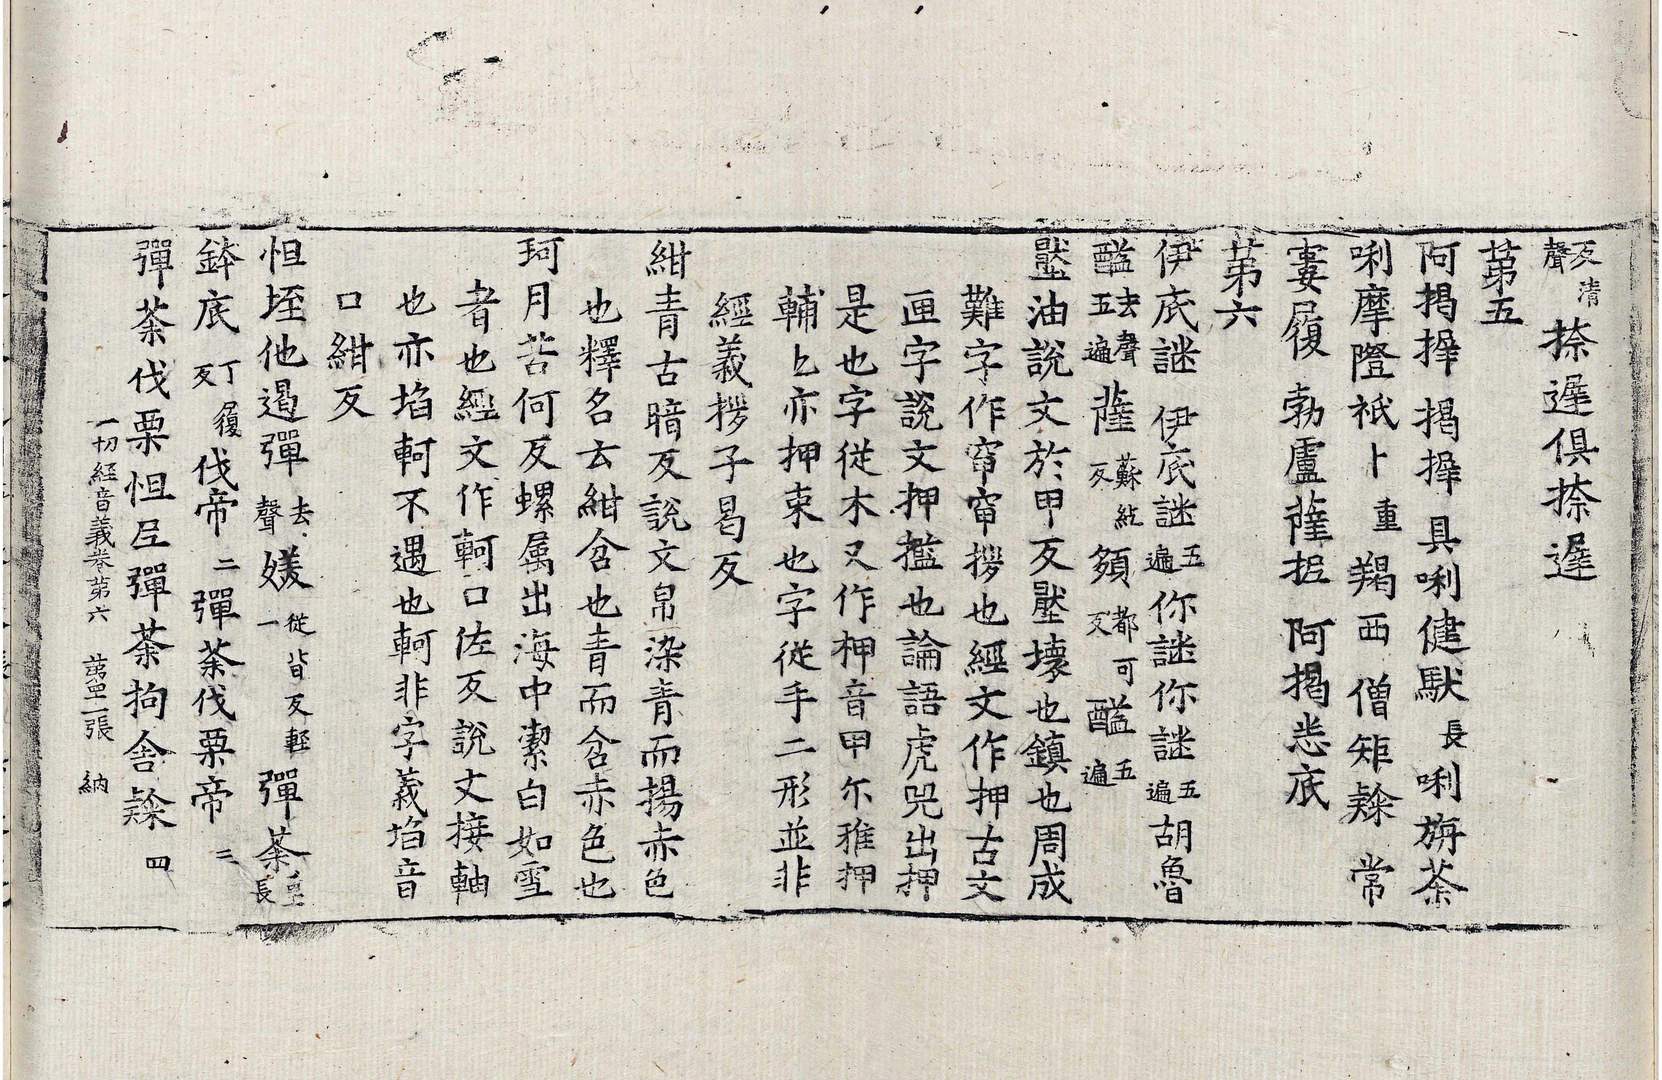 反清聲捺遲俱捺遲
第五
阿揭揮揭揮具唎健馱長唎旃荼
唎摩隥衹卜重羯西僧矩鿃常
婁履勃盧薩抳阿揭悉底
第六
伊底謎伊底謎五遍你謎你謎五遍胡魯
醯去聲五遍薩蘇紇反頞都可反醯五遍
壓油說文於甲反壓壞也鎮也周成
難字作窄窄拶也經文作押古文
匣字說文押檻也論語虎兕出押
是也字從木又作柙音甲尒雅押
輔匕亦押束也字從手二形並非
經義拶子曷反
紺青古暗反說文帛染青而揚赤色
也釋名云紺含也青而含赤色也
珂月苦何反螺属出海中潔白如雪
者也經文作軻口佐反說文接軸
也亦埳軻不遇也軻非字義埳音
口紺反
怛垤他遏彈去聲媄從背反輕一彈荼重長
鉢底丁履反伐帝二彈荼伐栗帝三
彈荼伐栗怛𡰱彈荼拘舍鿃四
一切經音義卷第六 第二張 納